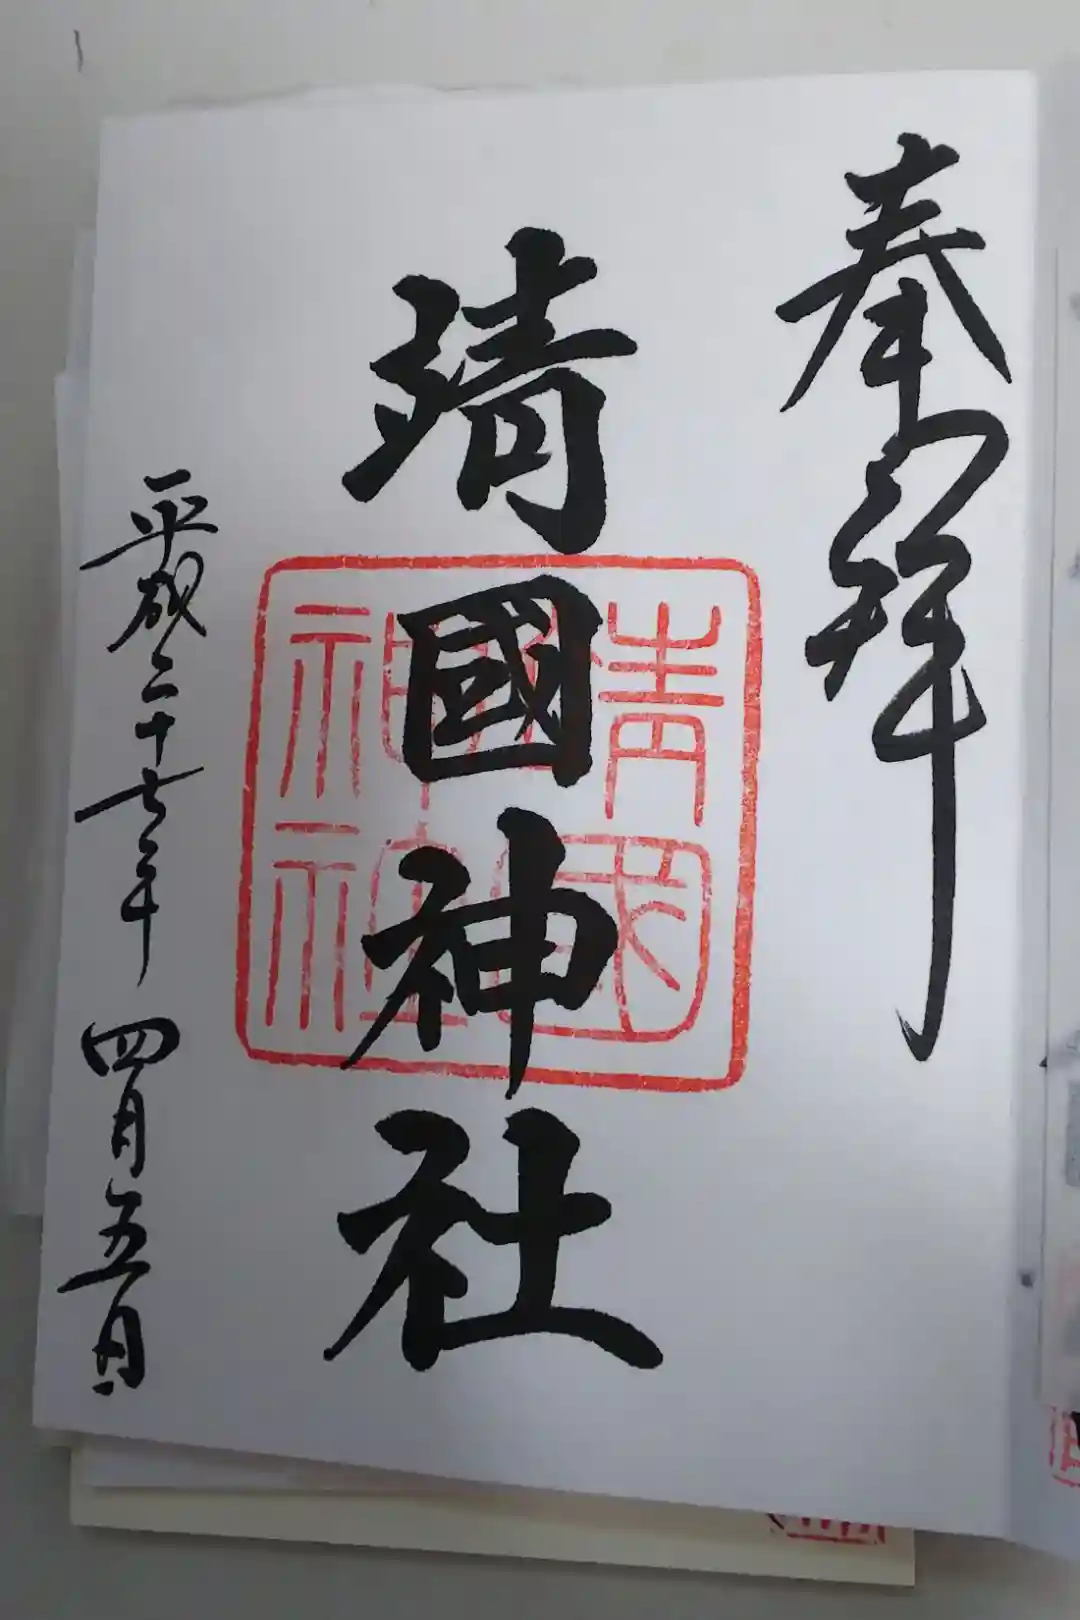 奉拝
靖國神社
靖國神社
平成二十七年 四月五日